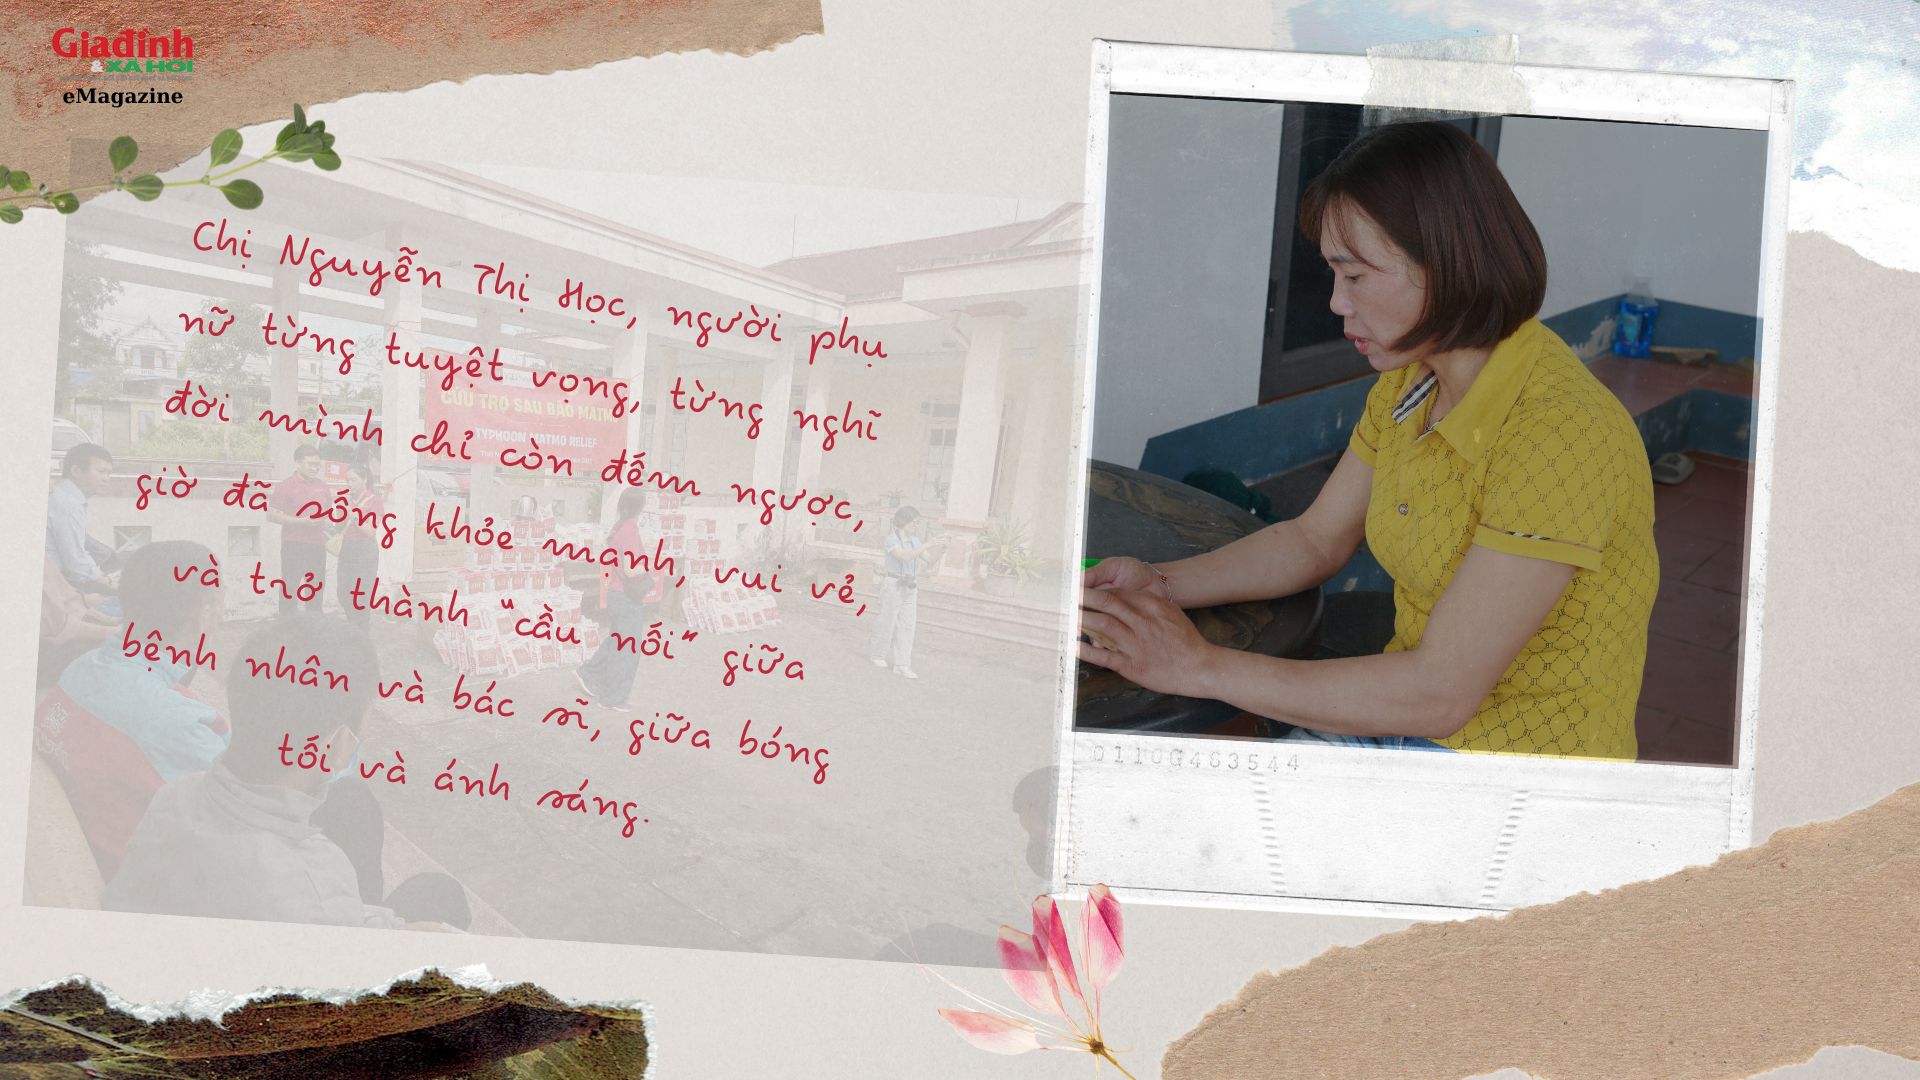 Giađình
& XÃ HỘI
eMagazine
Chị Nguyễn Thị Học, người phụ
nữ từng tuyệt vọng, từng nghĩ
đời mình chỉ còn đếm ngược,
giờ đã sống khỏe mạnh, vui vẻ,
và trở thành “cầu nối” giữa
bệnh nhân và bác sĩ, giữa bóng
tối và ánh sáng.
CỨU TRỢ SAU BÃO MATMO
TYPHOON MATMO RELIEF
0110G463544